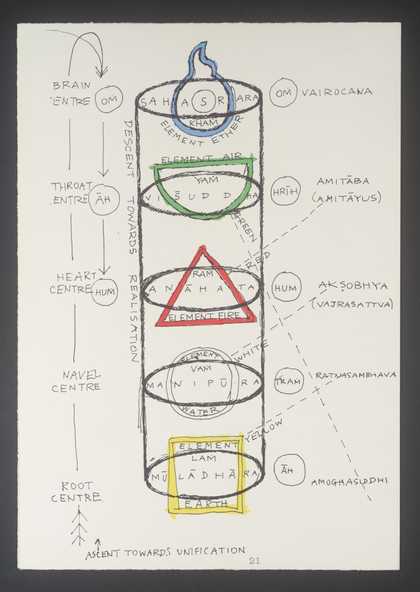 BRAIN
CENTRE
OM
SAHASRARA
OM
VAIROCANA
KHAM
ELEMENT ETHER
DESCENT TOWARDS REALISATION
ELEMENT AIR
YAṀ
THROAT
CENTRE
ĀH
VIŠUDDHA
HRĪH
AMITĀBA
(AMITĀYUS)
GREEN
RED
HEART
CENTRE
HUM
RAM
ANĀHATA
ELEMENT FIRE
HUM
AKṢOBHYA
(VAJRASATTVA)
WHITE
ELEMENT
VAM
NAVEL
CENTRE
MANIPŪRA
WATER
TRAM
RATNASAMBHAVA
YELLOW
ELEMENT
LAṀ
ROOT
CENTRE
MŪLĀDHĀRA
EARTH
ĀH
AMOGHASIDDHI
ASCENT TOWARDS UNIFICATION
21